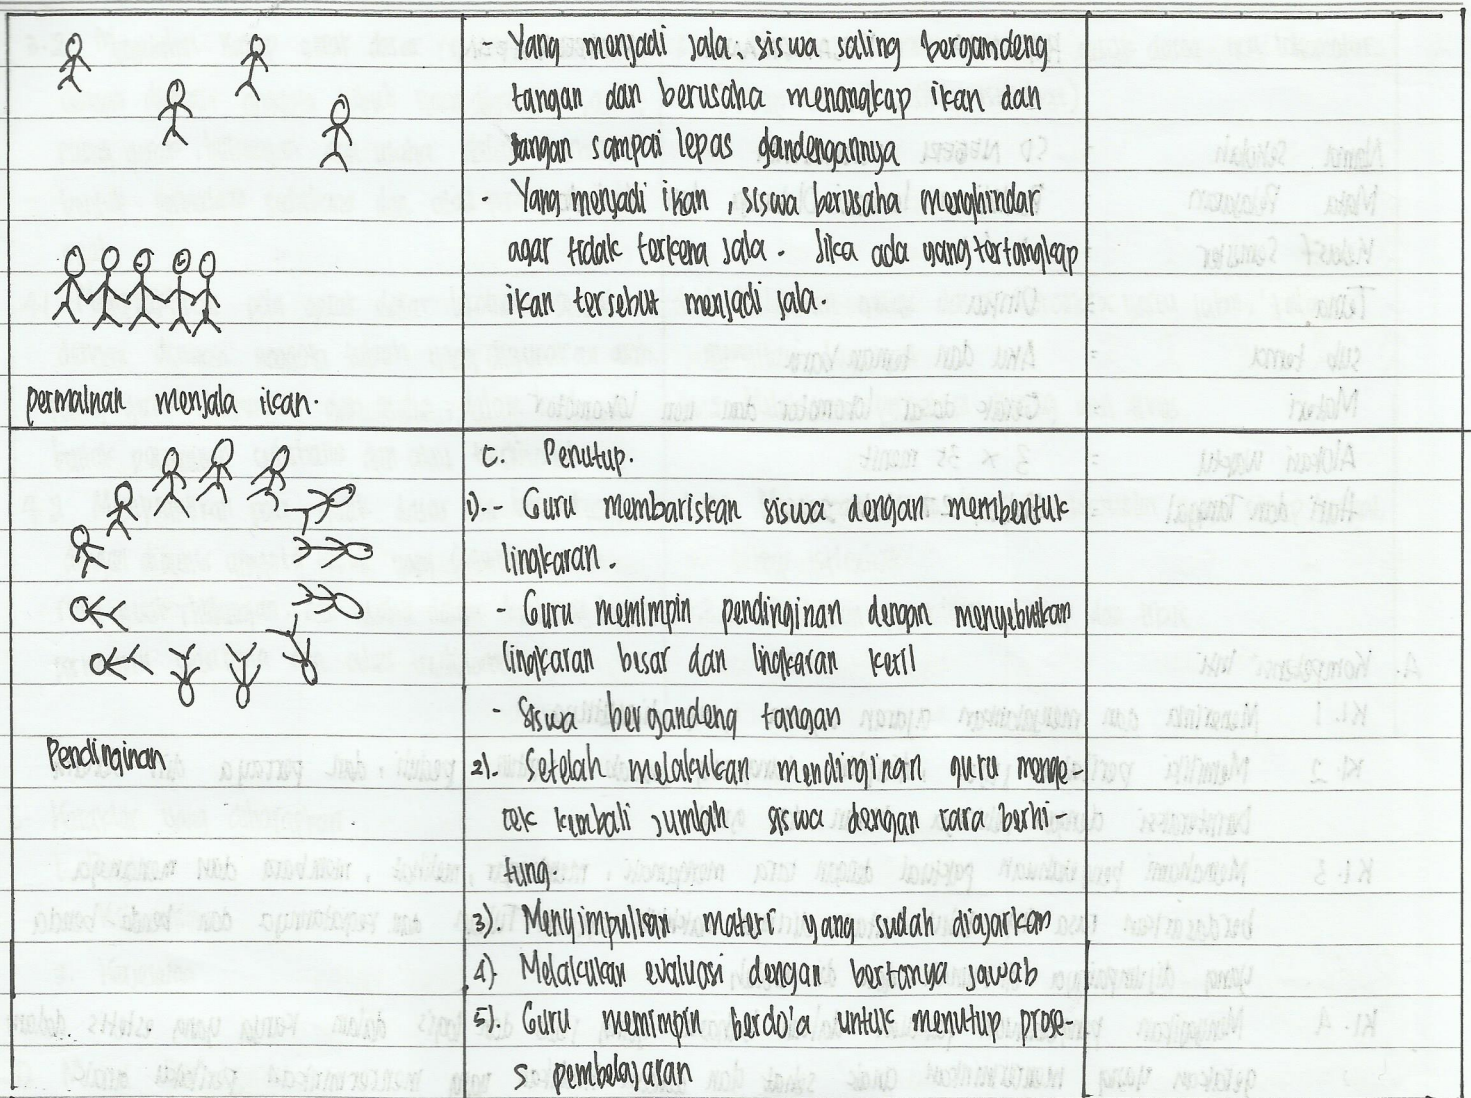 - Yang menjadi jala, siswa saling bergandeng
tangan dan berusaha menangkap ikan dan
jangan sampai lepas gandengannya
- Yang menjadi ikan, siswa berusaha menghindar
agar tidak terkena jala. Jika ada yang tertangkap
ikan tersebut menjadi jala.
permainan menjala ikan.
C. Penutup.
1). - Guru membariskan siswa dengan membentuk
lingkaran.
- Guru memimpin pendinginan dengan menyebutkan
lingkaran besar dan lingkaran kecil
- Siswa bergandeng tangan
Pendinginan
2). Setelah melakukan mendinginan guru menge-
cek kembali jumlah siswa dengan cara berhi-
tung.
3). Menyimpulkan materi yang sudah diajarkan
4). Melakukan evaluasi dengan bertanya jawab
5). Guru memimpin berdo'a untuk menutup prose-
s pembelajaran